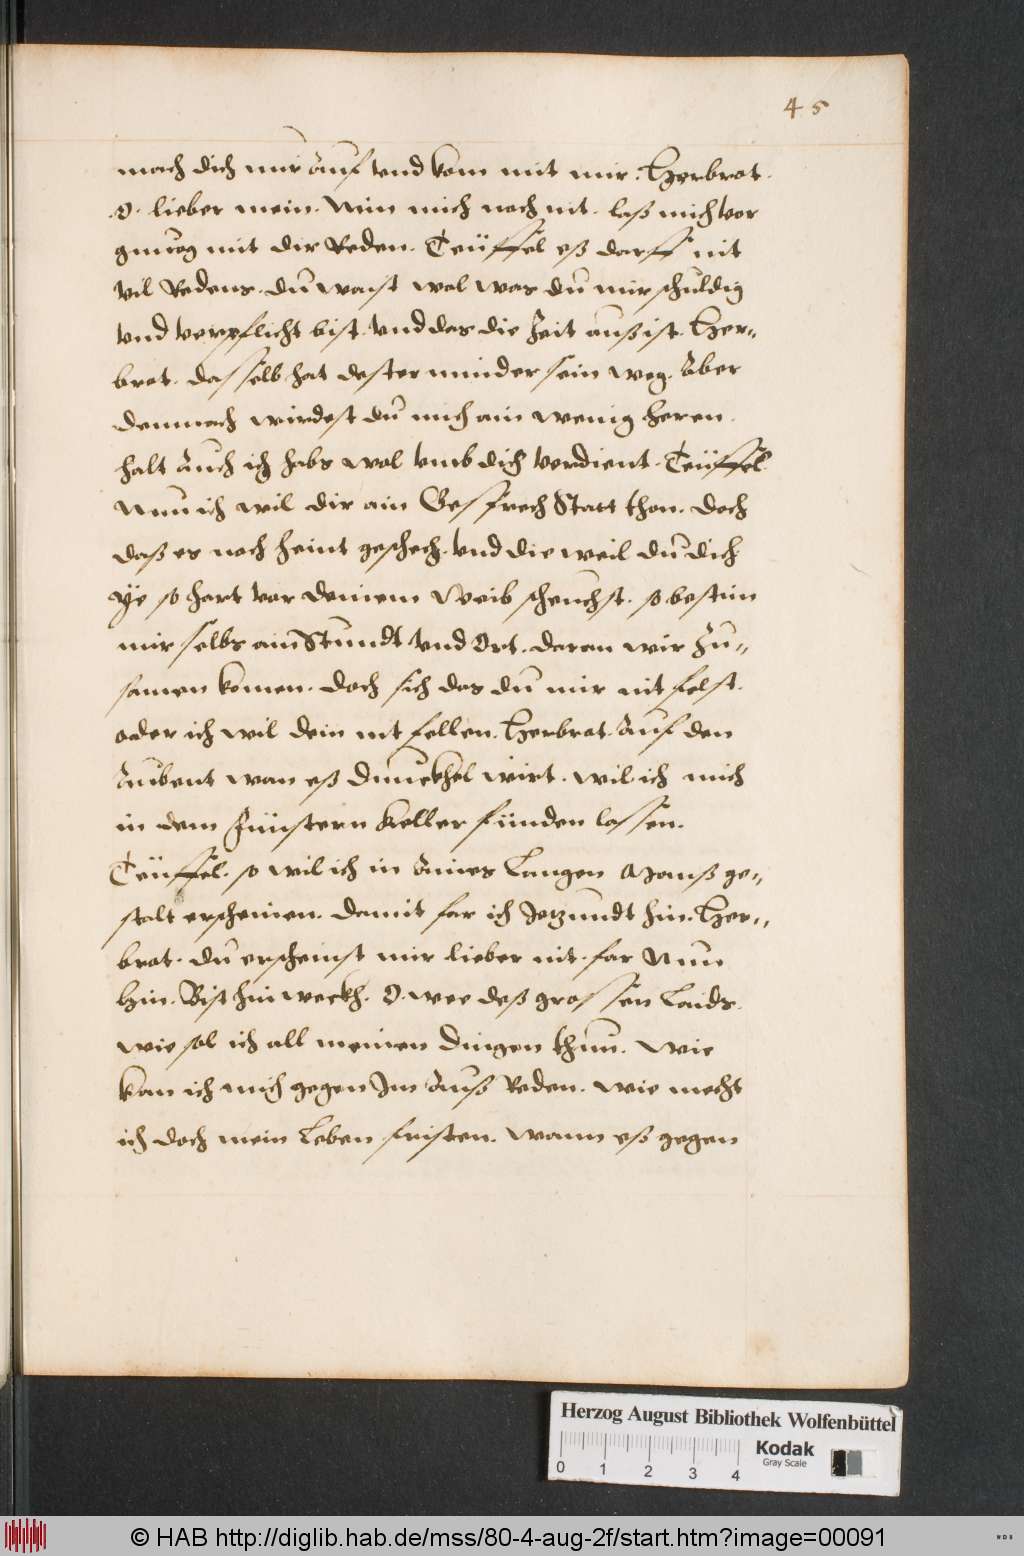 45
mach dich mir auf vnd kom mit mir. Herbrot.
O. lieber mein. Nim mich noch nit. laß mich vor
gnuog mit dir Reden. Teüffel eß darff nit
vil Redens. du waist wol was du mir schuldig
vnd verpflicht bist. vnd das die Zeit auß ist. Her=
brot. dasselb hat dester minder sein weg. Aber
dennoch wirdest du mich ain wenig heren.
halt Auch ich habs wol vmb dich verdient. Teüffel
Nun ich wil dir ain Gesprech Statt thon. doch
daß es noch heint geschech. vnd die weil du dich
ye so hart vor deinem Weib scheuchst. so bestim
mir selbs ain Stundt vnd Ort. daran wir Zu=
samen komen. doch sich das du mir nit felst.
oder ich wil dein nit fellen. Herbrot. Auf den
Aubent wan eß dunckhel wirt. wil ich mich
in dem finstern Keller finden lassen.
Teüffel. so wil ich in Aines Langen Manß ge=
stalt erscheinen. damit far ich Jetzundt hin. Her=
brot. du erscheinst mir lieber nit. far Nun
hin. Bist hin weckh. O. wee deß grossen Laids.
wie sol ich all meinen dingen thun. Wie
kan ich mich gegen Jm Auß Reden. wie mecht
ich doch mein Leben fristen. wann eß gegen
Herzog August Bibliothek Wolfenbüttel
Kodak
Gray Scale
0 1 2 3 4
© HAB http://diglib.hab.de/mss/80-4-aug-2f/start.htm?image=00091